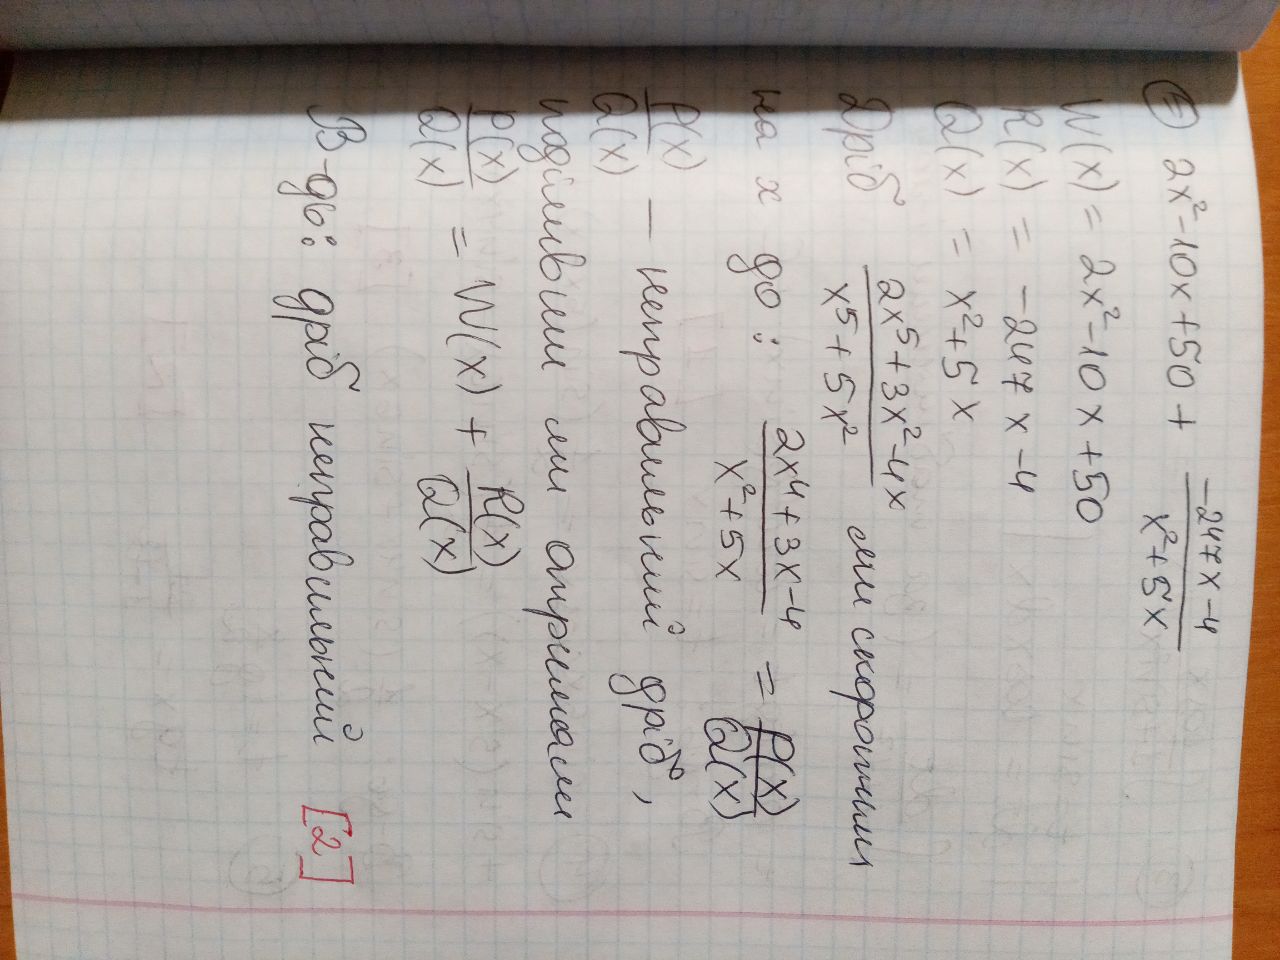 = 2x²-10x+50 + (-247x-4)/(x²+5x)
W(x) = 2x²-10x+50
R(x) = -247x-4
Q(x) = x²+5x
Дріб (2x⁵+3x²-4x)/(x⁵+5x²) ми скоротили
на x до: (2x⁴+3x-4)/(x²+5x) = P(x)/Q(x)
P(x)/Q(x) — неправильний дріб,
поділивши ми отримали
P(x)/Q(x) = W(x) + R(x)/Q(x)
В-дь: дріб неправильний [2]